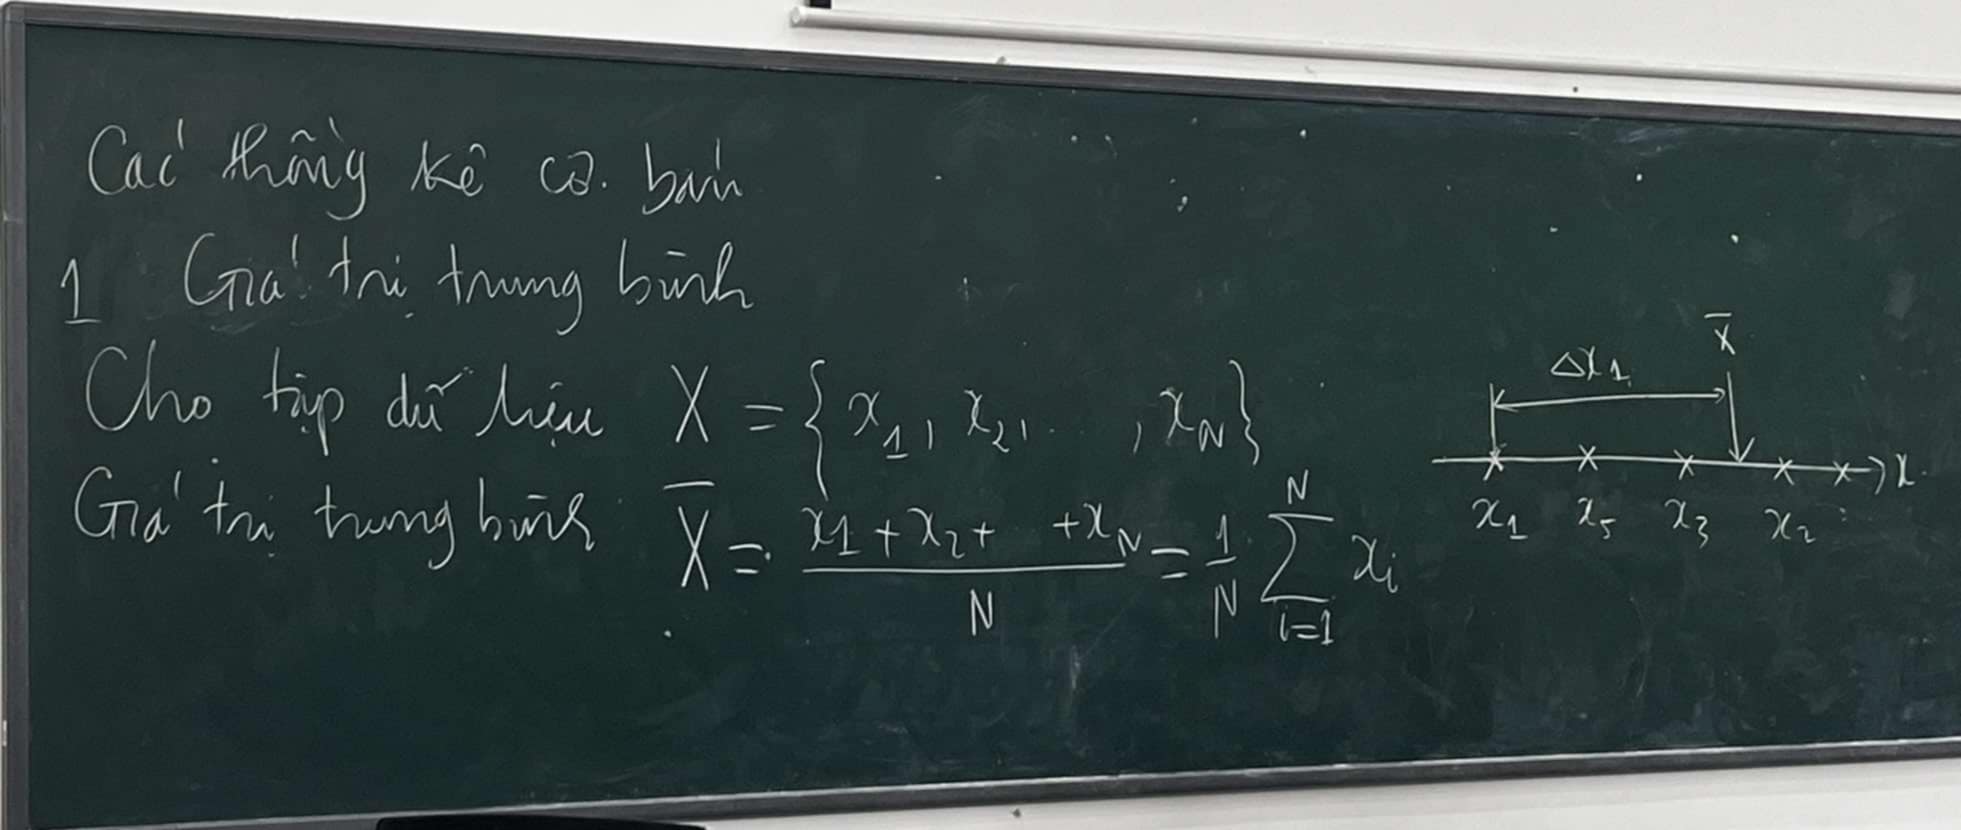 Các thống kê cơ bản
1 Giá trị trung bình
Cho tập dữ liệu X = { x₁, x₂, . . , x_N }
Giá trị trung bình X̄ = (x₁ + x₂ + + x_N)/N = 1/N ∑_{i=1}^{N} x_i
x̄
Δx₁
x
x₁ x₅ x₃ x₂